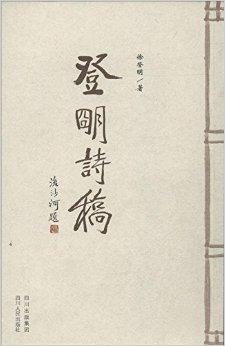 徐登明/著
登明詩稿
流沙河題
四川出版集团
四川人民出版社